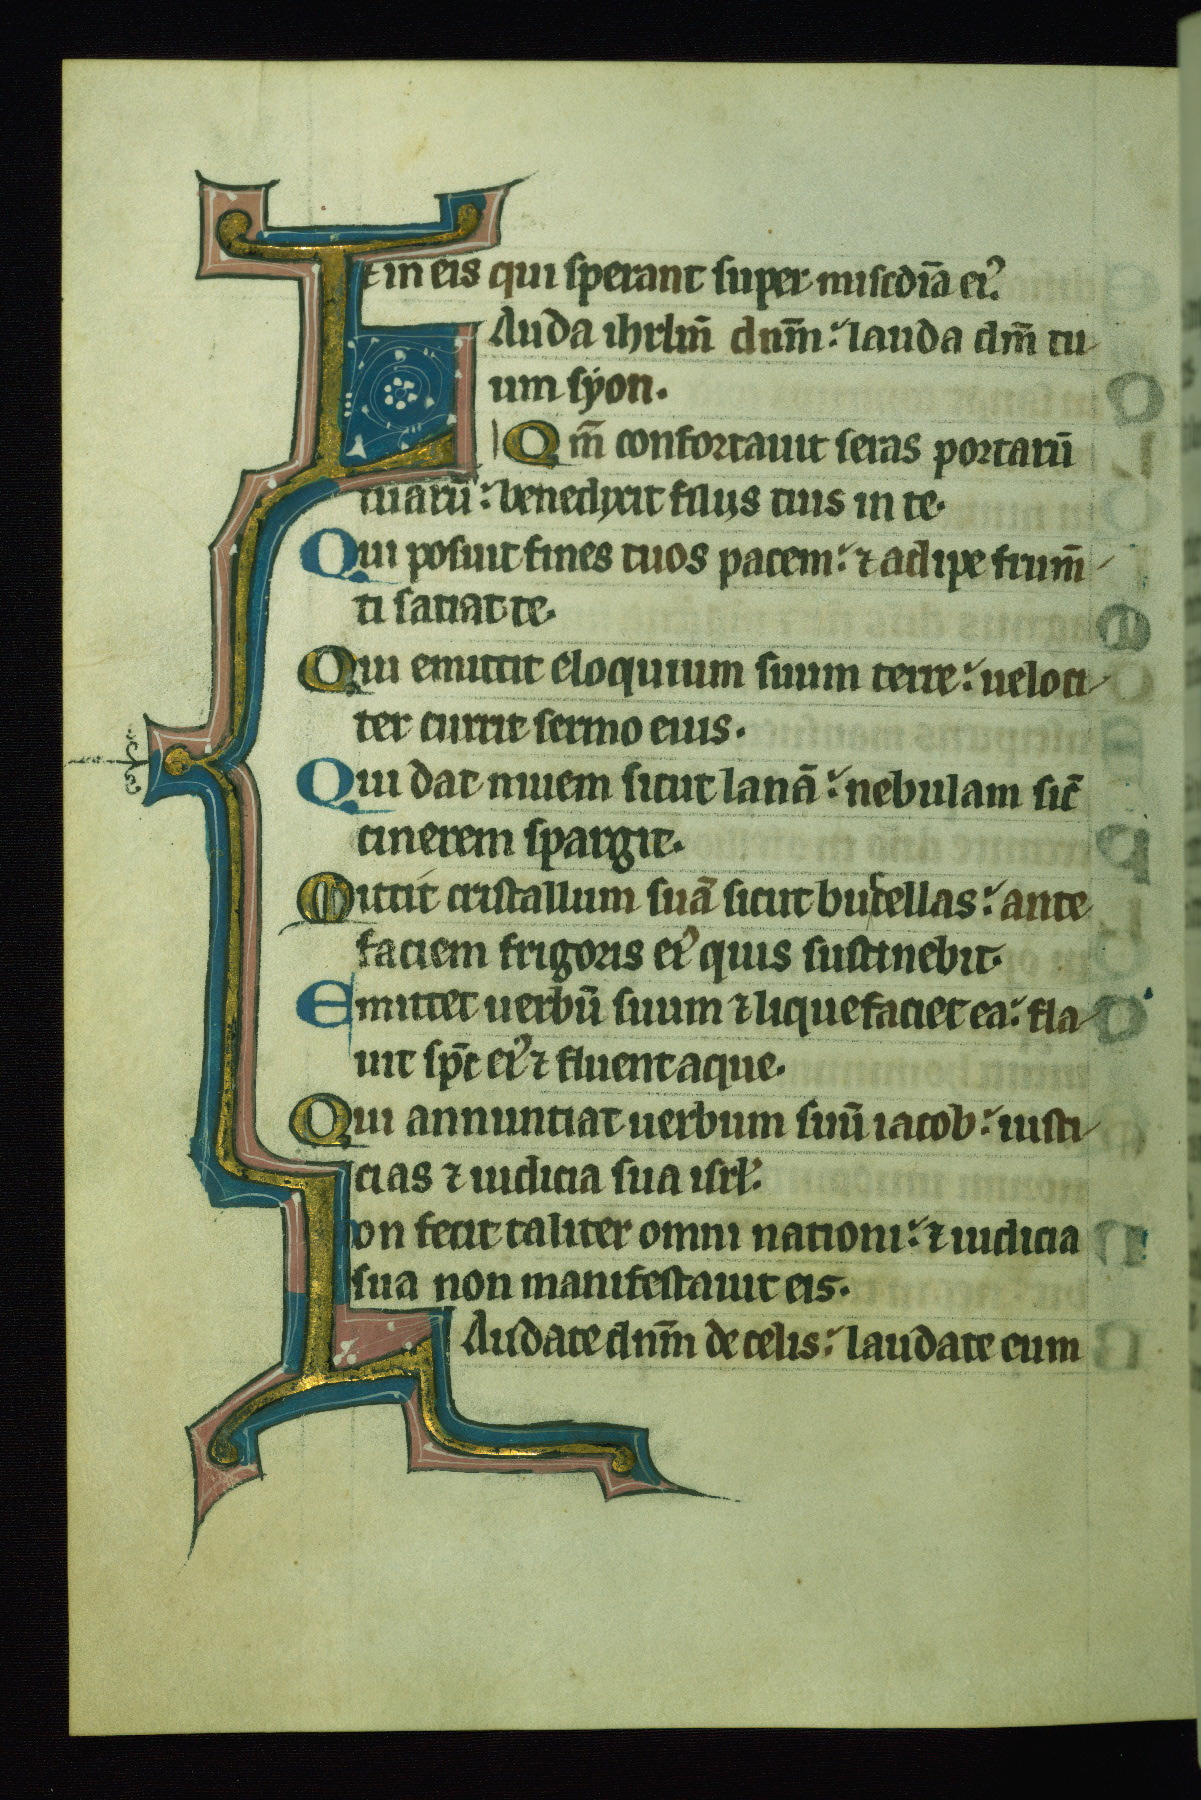 et in eis qui sperant super misc̄dīa ei᾿.
Lauda ihrlm̄ dnm̄: lauda dm̄ tu
um syon.
Qm̄ confortauit seras portarū
tuarū: benedixit filiis tuis in te.
Qui posuit fines tuos pacem: ⁊ adipe frum̄
ti satiat te.
Qui emittit eloquium suum terre: ueloci
ter currit sermo eius.
Qui dat niuem sicut lanā: nebulam sic̄
cinerem spargit.
Mittit cristallum suā sicut bucellas: ante
faciem frigoris ei᾿ quis sustinebit.
Emittet uerbū suum ⁊ liquefaciet ea: fla
uit sp̄c ei᾿ ⁊ fluent aque.
Qui annuntiat uerbum suū iacob: iusti
cias ⁊ iudicia sua isrl.
Non fecit taliter omni nationi: ⁊ iudicia
sua non manifestauit eis.
Laudate dnm̄ de celis: laudate eum